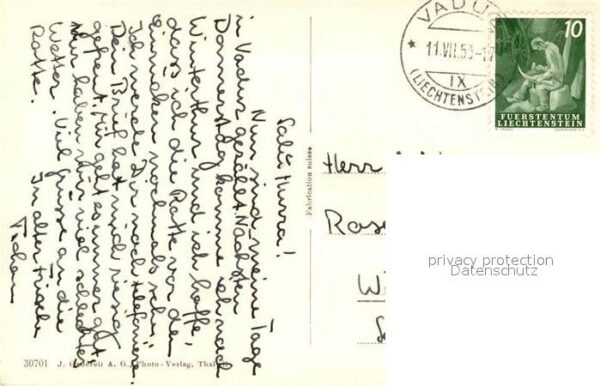 Salü Hurra!
Nun sind meine Tage
in Vaduz gezählt. Nächsten
Donnerstag komme ich nach
Winterthur und ich hoffe,
dass ich die Ratte vor dem
Einrücken noch sehe.
Ich werde Dir noch telefonieren.
Dein Brief hat mich riesig
gefreut. Mir geht es immer gut.
Wir haben nur viel schlechtes
Wetter. Viel Grüsse an die
Ratte.
In alter Frische
Fabrication suisse
30701 J. A. G., Photo-Verlag,
VADUZ
11.VII.53-17
IX
(LIECHTENSTEIN)
10
FUERSTENTUM
LIECHTENSTEIN
Herr
Rose
Wi
privacy protection
Datenschutz